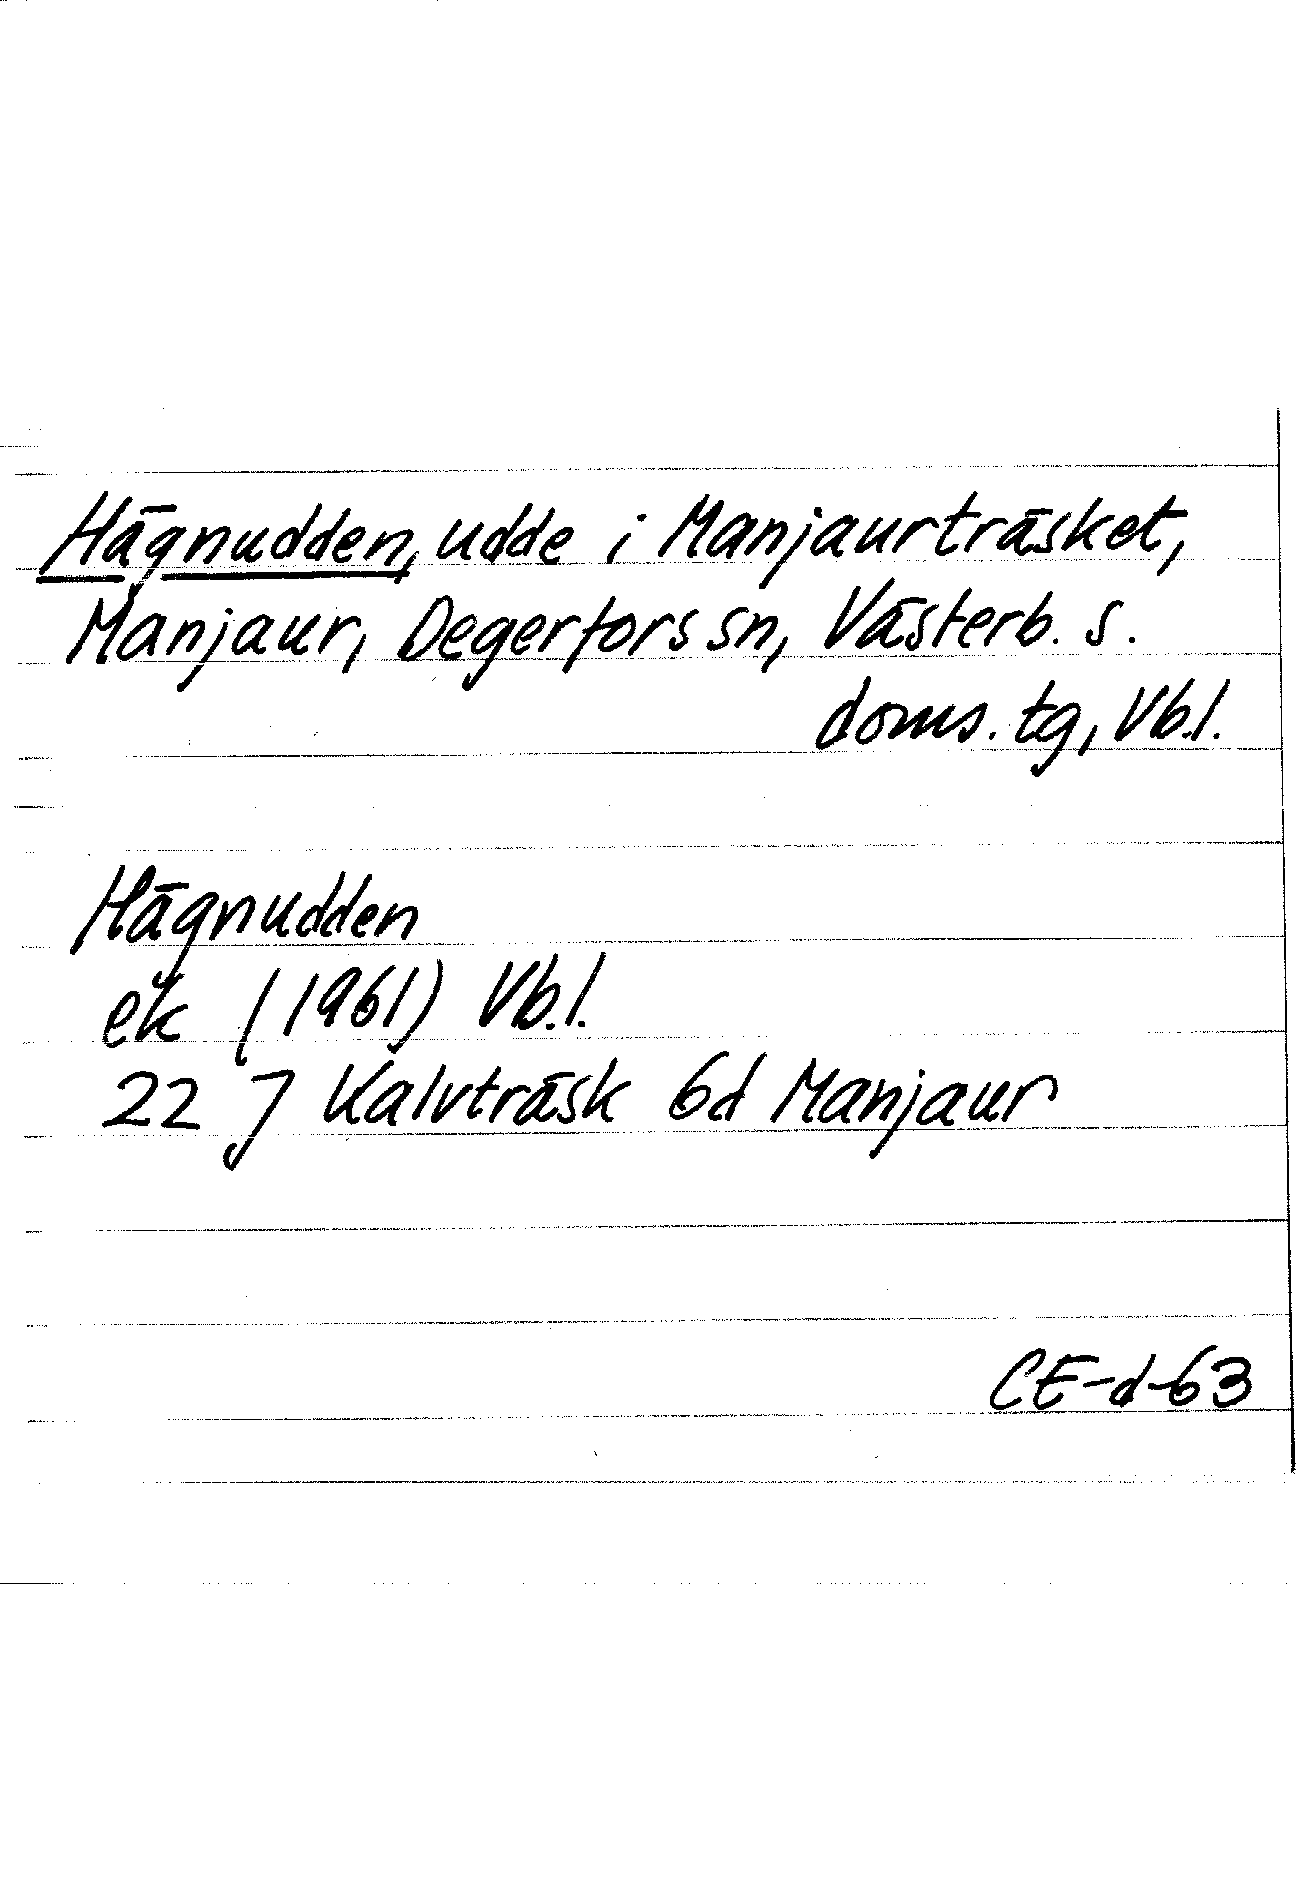 Hägnudden, udde i Manjaurträsket,
Manjaur, Degerfors sn, Västerb. s.
doms. tg, Vb.l.
Hägnudden
ek (1961) Vb.l.
22 J Kalvträsk 6d Manjaur
CE-d-63